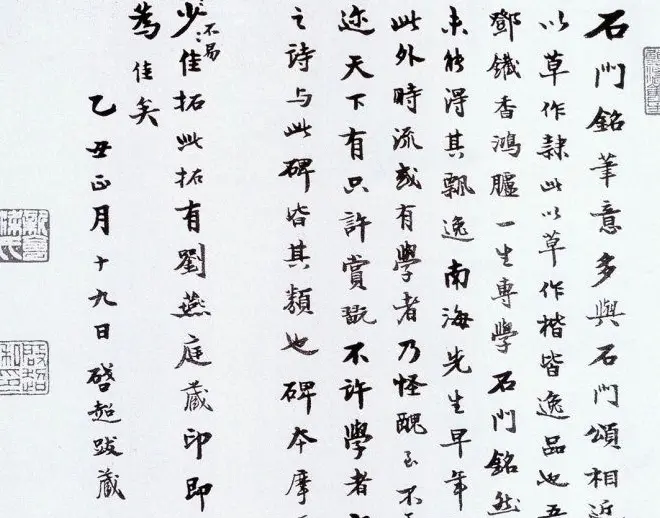 石門銘筆意多與石門頌相近
以草作隸此以草作楷皆逸品也
鄧鐵香鴻臚一生專學石門銘然
未能得其飄逸南海先生早年
此外時流或有學者乃怪醜至不
迹天下有只許賞翫不許學者
之詩與此碑皆其類也碑本摩
少佳拓此拓有劉燕庭藏印即
不易
為佳矣
乙丑正月十九日啓超跋藏